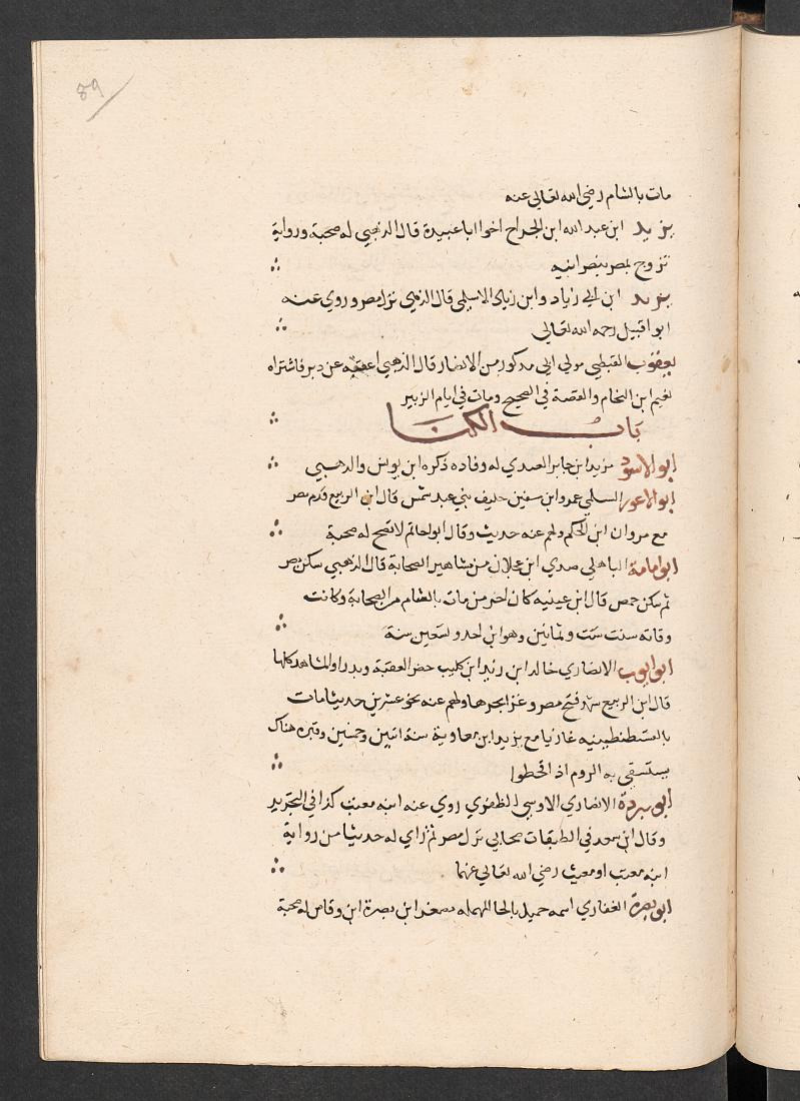 89
مات بالشام رضي الله تعالى عنه
يزيد ابن عبد الله ابن الجراح اخوا ابا عبيدة قال الذهبي له صحبة ورواية
تزوج بمصر بنصرانيه
يزيد ابن ابي زياد وابن زياد الاسلمي قال الذهبي نزل مصر وروي عنه
ابو اقبيل رحمه الله تعالى
يعقوب القبطي مولي ابي مدكور من الانصار قال الذهبي اعتقه عن دبر فاشتراه
نعيم ابن النخام والقصة في الصحيح ومات في ايام الزبير
باب الكنا
ابو الاسود مزيد ابن جابر العبدي له وفاده ذكره ابن يونس والذهبي
ابو الاعور السلمي عمرو ابن سفين حليف بني عبد شمس قال ابن الربيع قدم مصر
مع مروان ابن الحكم ولهم عنه حديث وقال ابو حاتم لا تصح له صحبة
ابو امامة الباهلي صدي ابن عجلان من مشاهير الصحابة قال الذهبي سكن مصر
ثم سكن حمص قال ابن عيينه كان اخر من مات بالشام من الصحابة وكانت
وفاته سنت ست وثمانين وهو ابن احد وتسعين سنة
ابو ايوب الانصاري خالد ابن زيد ابن كليب حضر العقبة وبدرا والمشاهد كلها
قال ابن الربيع شهد فتح مصر وغزا بحرها ولهم عنه نحو عشرين حديثا مات
بالقسطنطينيه غازيا مع يزيد ابن معاوية سنة اثنين وخمسين وقبره هناك
يستسقي به الروم اذا قحطوا
ابو بردة الانصاري الاوسي الظفري روي عنه ابنه معتب كذا في التجريد
وقال ابن سعد في الطبقات صحابي نزل مصر ثم راي له حديثا من رواية
ابنه معتب او مغيث رضي الله تعالى عنهما
ابو بصرة الغفاري اسمه حميل بالحا المهمله مصغر ابن بصرة ابن وقاص له صحبة